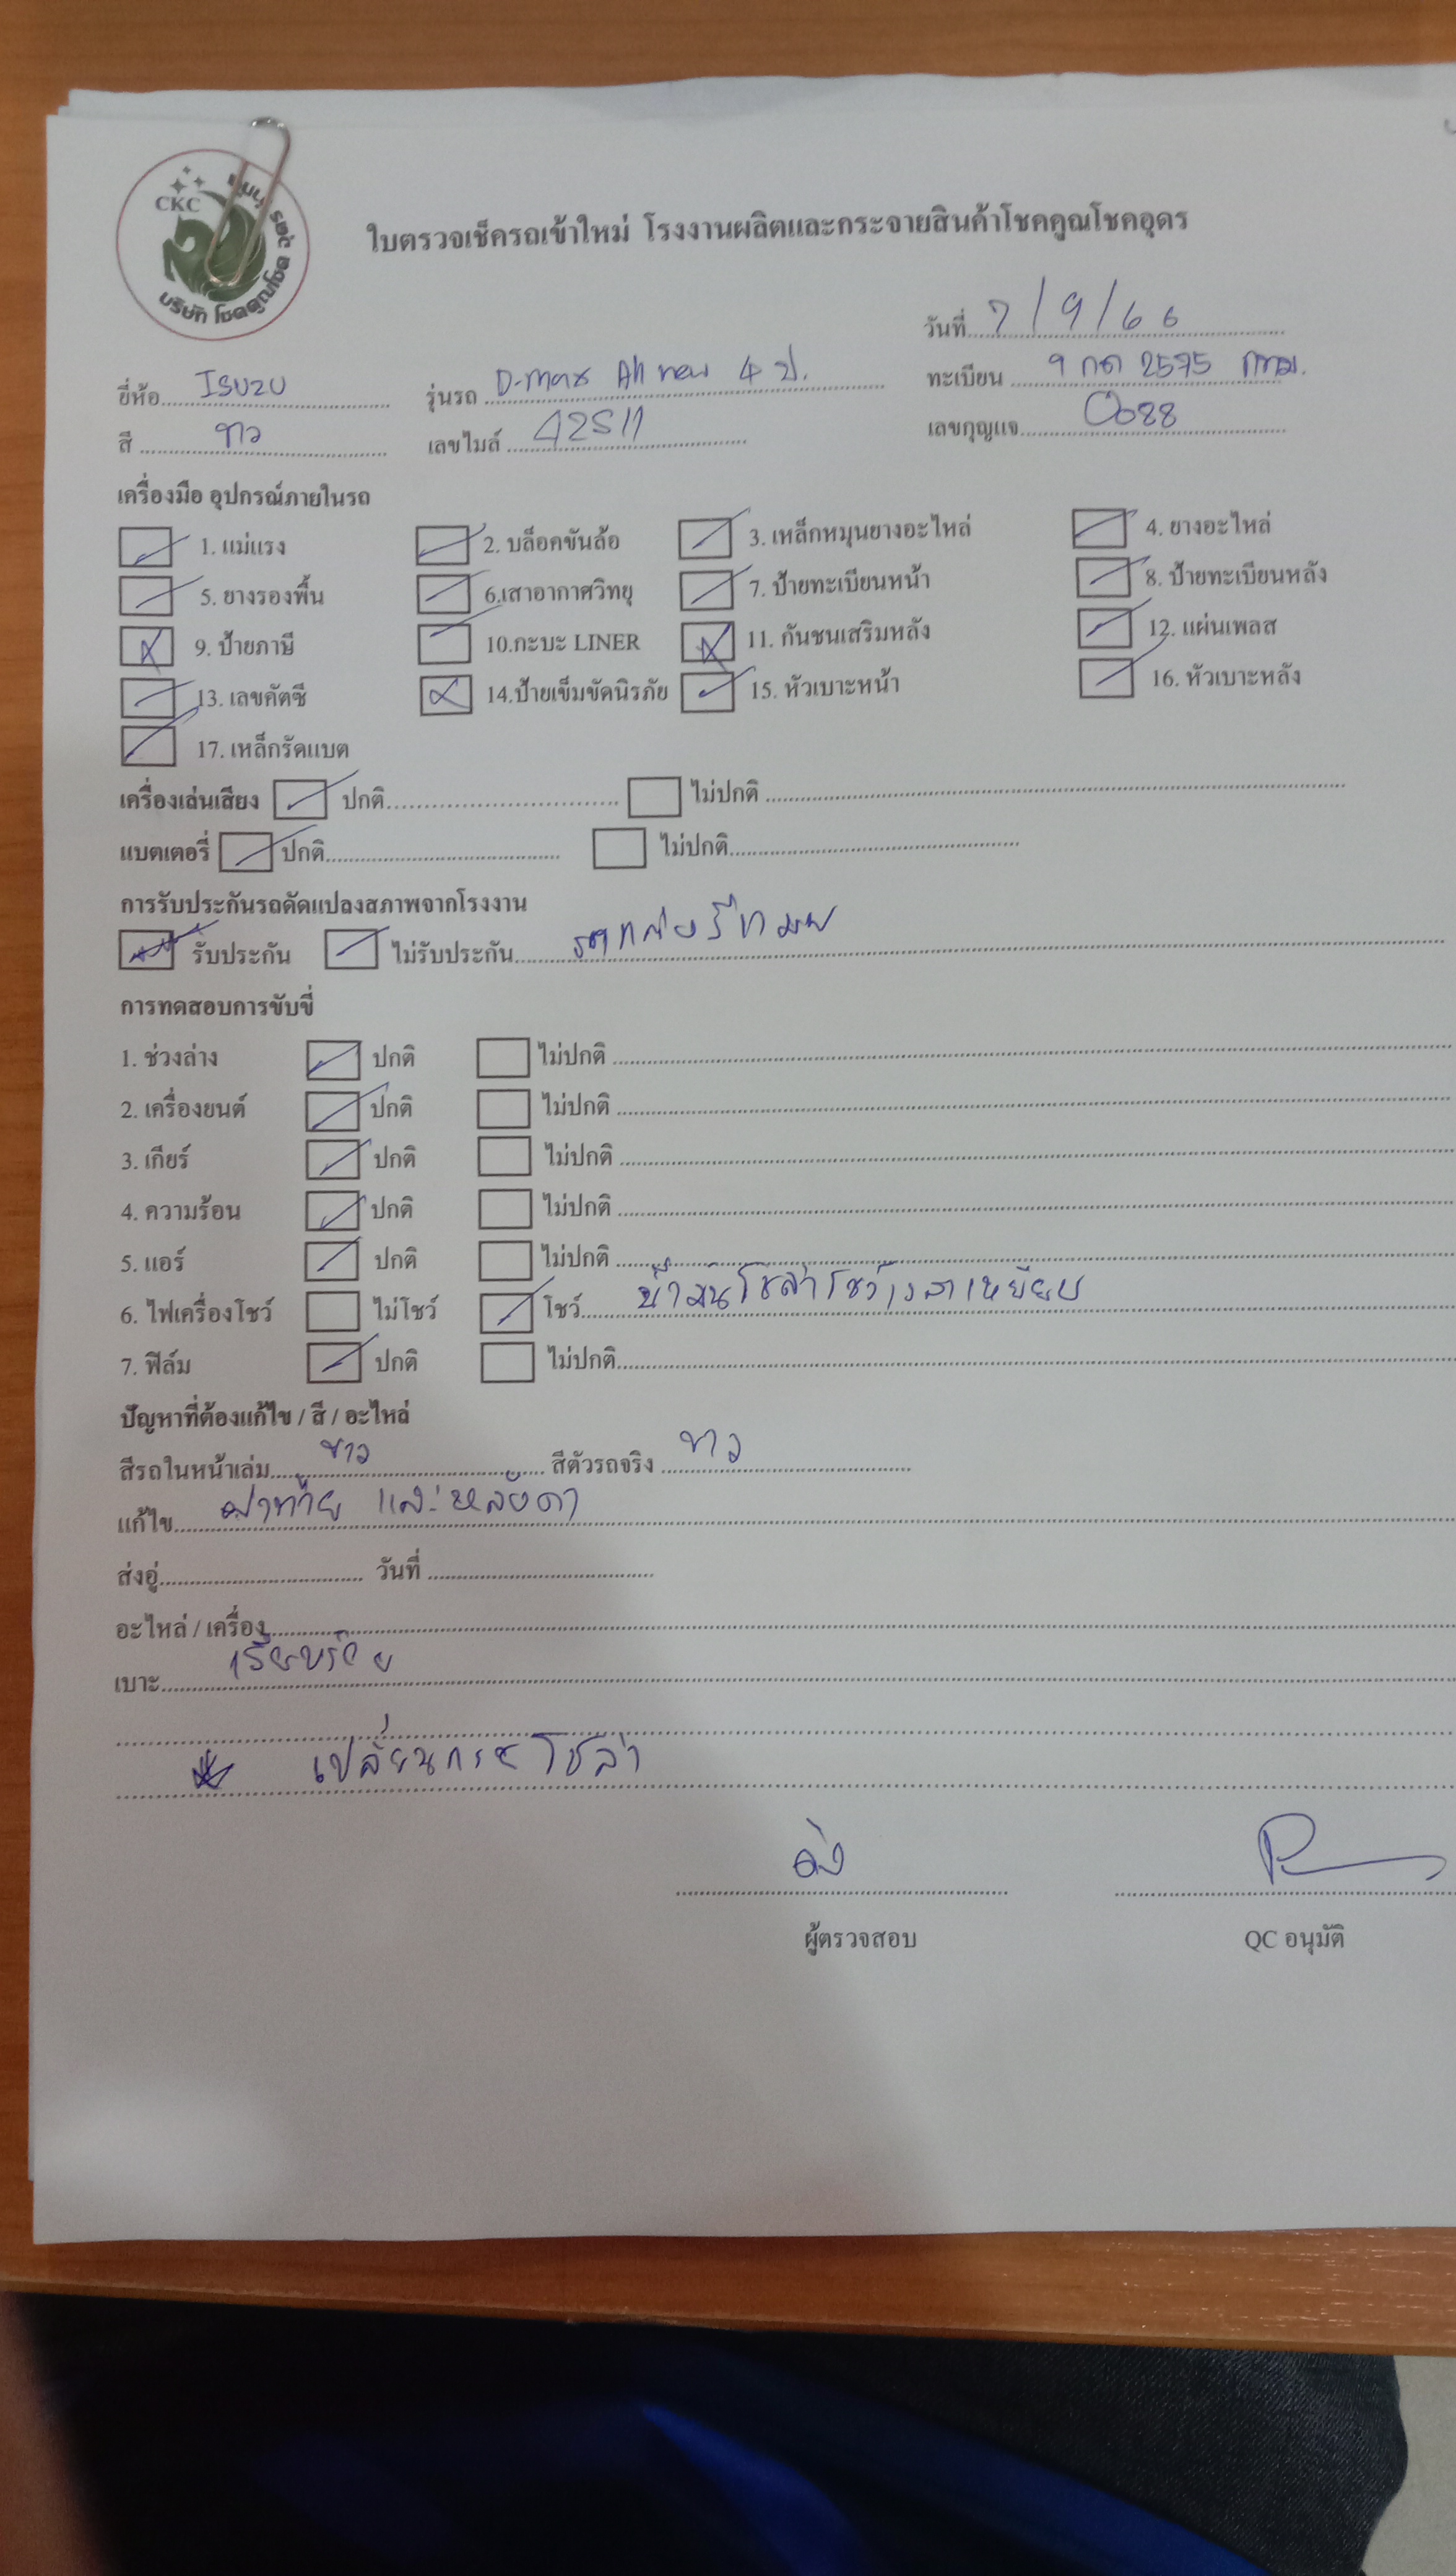 CKC
บริษัท โชคคูณโชค
ใบตรวจเช็ครถเข้าใหม่ โรงงานผลิตและกระจายสินค้าโชคคูณโชคอุดร
วันที่ 7/9/66
ยี่ห้อ ISUZU รุ่นรถ D-max All new 4 ป. ทะเบียน 9 กด 2575 กทม.
สี ขาว เลขไมล์ 42511 เลขกุญแจ 0088
เครื่องมือ อุปกรณ์ภายในรถ
1. แม่แรง 2. บล็อคขันล้อ 3. เหล็กหมุนยางอะไหล่ 4. ยางอะไหล่
5. ยางรองพื้น 6.เสาอากาศวิทยุ 7. ป้ายทะเบียนหน้า 8. ป้ายทะเบียนหลัง
9. ป้ายภาษี 10.กะบะ LINER 11. กันชนเสริมหลัง 12. แผ่นเพลส
13. เลขคัตซี 14.ป้ายเข็มขัดนิรภัย 15. หัวเบาะหน้า 16. หัวเบาะหลัง
17. เหล็กรัดแบต
เครื่องเล่นเสียง ปกติ ไม่ปกติ
แบตเตอรี่ ปกติ ไม่ปกติ
การรับประกันรถดัดแปลงสภาพจากโรงงาน
รับประกัน ไม่รับประกัน
การทดสอบการขับขี่
1. ช่วงล่าง ปกติ ไม่ปกติ
2. เครื่องยนต์ ปกติ ไม่ปกติ
3. เกียร์ ปกติ ไม่ปกติ
4. ความร้อน ปกติ ไม่ปกติ
5. แอร์ ปกติ ไม่ปกติ
6. ไฟเครื่องโชว์ ไม่โชว์ โชว์
7. ฟิล์ม ปกติ ไม่ปกติ
ปัญหาที่ต้องแก้ไข / สี / อะไหล่
สีรถในหน้าเล่ม ขาว สีตัวรถจริง ขาว
แก้ไข ฝาท้าย และหลังคา
ส่งอู่ วันที่
อะไหล่ / เครื่อง
เบาะ เรียบร้อย
เปลี่ยนกรองโซล่า
ผู้ตรวจสอบ QC อนุมัติ